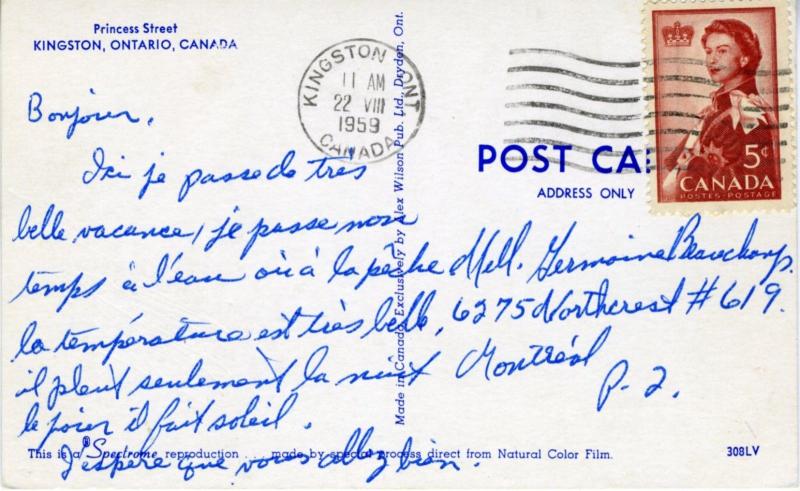 Princess Street
KINGSTON, ONTARIO, CANADA
KINGSTON ONT
11 AM
22 VIII
1959
CANADA
5¢
CANADA
POSTES-POSTAGE
POST CA
ADDRESS ONLY
Bonjour,
Ici je passe de très
belle vacance, je passe mon
temps à l'eau où à la pêche
la température est très belle,
il pleut seulement la nuit
le jour il fait soleil.
J'espère que vous allez bien.
Mell. Germaine Beauchamp.
6275 Northcrest #619.
Montréal
P-2.
Made in Canada Exclusively by Alex Wilson Pub. Ltd., Dryden, Ont.
This is a Spectrome reproduction . . . made by special process direct from Natural Color Film.
308LV